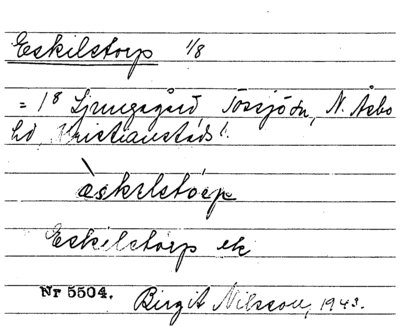 Eskilstorp 1/8
= 1⁸ Ljungagård, Tåssjö sn, N. Åsbo
hd, Kristianstads l.
æskɩlstórp
Eskilstorp ek
Nr 5504. Birgit Nilsson, 1943.